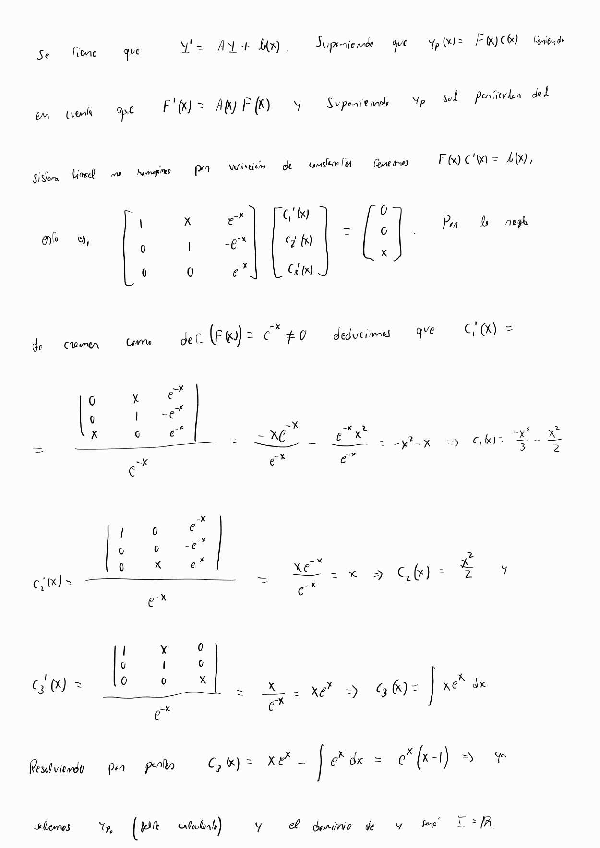 Se tiene que Y' = AY + b(x). Suponiendo que Yp(x) = F(x)C(x) teniendo
en cuenta que F'(x) = A(x) F(x) y Suponiendo Yp sol particular del
sistema lineal no homogéneo por variación de constantes tenemos F(x) C'(x) = b(x),
esto es, [1 x e^-x; 0 1 -e^-x; 0 0 e^-x] [C1'(x); C2'(x); C3'(x)] = [0; 0; x]. Por la regla
de cramer como det(F(x)) = e^-x ≠ 0 deducimos que C1'(x) =
= |0 x e^-x; 0 1 -e^-x; x 0 e^-x| / e^-x = -xe^-x / e^-x - e^-x x^2 / e^-x = -x^2 - x ⇒ C1(x) = -x^3/3 - x^2/2
C2'(x) = |1 0 e^-x; 0 0 -e^-x; 0 x e^-x| / e^-x = xe^-x / e^-x = x ⇒ C2(x) = x^2/2 y
C3'(x) = |1 x 0; 0 1 0; 0 0 x| / e^-x = x / e^-x = xe^x ⇒ C3(x) = ∫ xe^x dx
Resolviendo por partes C3(x) = xe^x - ∫ e^x dx = e^x (x-1) ⇒ ya
sabemos Yp (falta calcularlo) y el dominio de y será I = ℝ